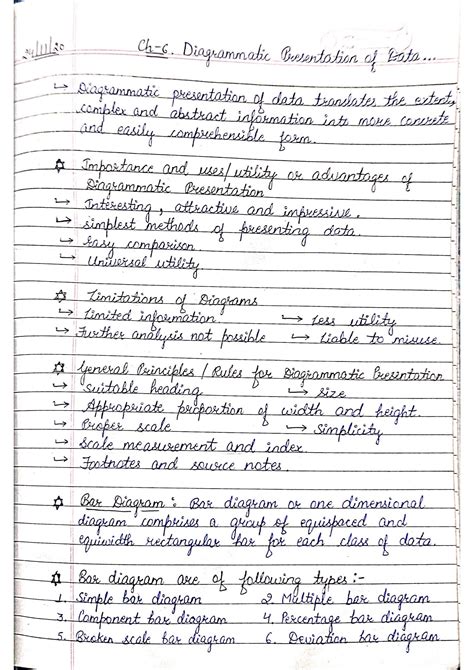 24/11/20
Ch-6. Diagrammatic Presentation of Data...
↳ Diagrammatic presentation of data translates the extent,
complex and abstract information into more concrete
and easily comprehensible form.
✡ Importance and uses/utility or advantages of
Diagrammatic Presentation
↳ Interesting, attractive and impressive.
↳ simplest methods of presenting data.
↳ Easy comparison.
↳ Universal utility
✡ Limitations of Diagrams
↳ Limited information ↳ Less utility
↳ Further analysis not possible ↳ Liable to misuse.
✡ General Principles / Rules for Diagrammatic Presentation
↳ Suitable heading ↳ Size
↳ Appropriate proportion of width and height.
↳ Proper scale ↳ Simplicity
↳ Scale measurement and index.
↳ Footnotes and source notes.
✡ Bar Diagram : Bar diagram or one dimensional
diagram comprises a group of equispaced and
equiwidth rectangular bar for each class of data.
✡ Bar diagram are of following types :-
1. Simple bar diagram 2. Multiple bar diagram
3. Component bar diagram 4. Percentage bar diagram
5. Broken scale bar diagram 6. Deviation bar diagram